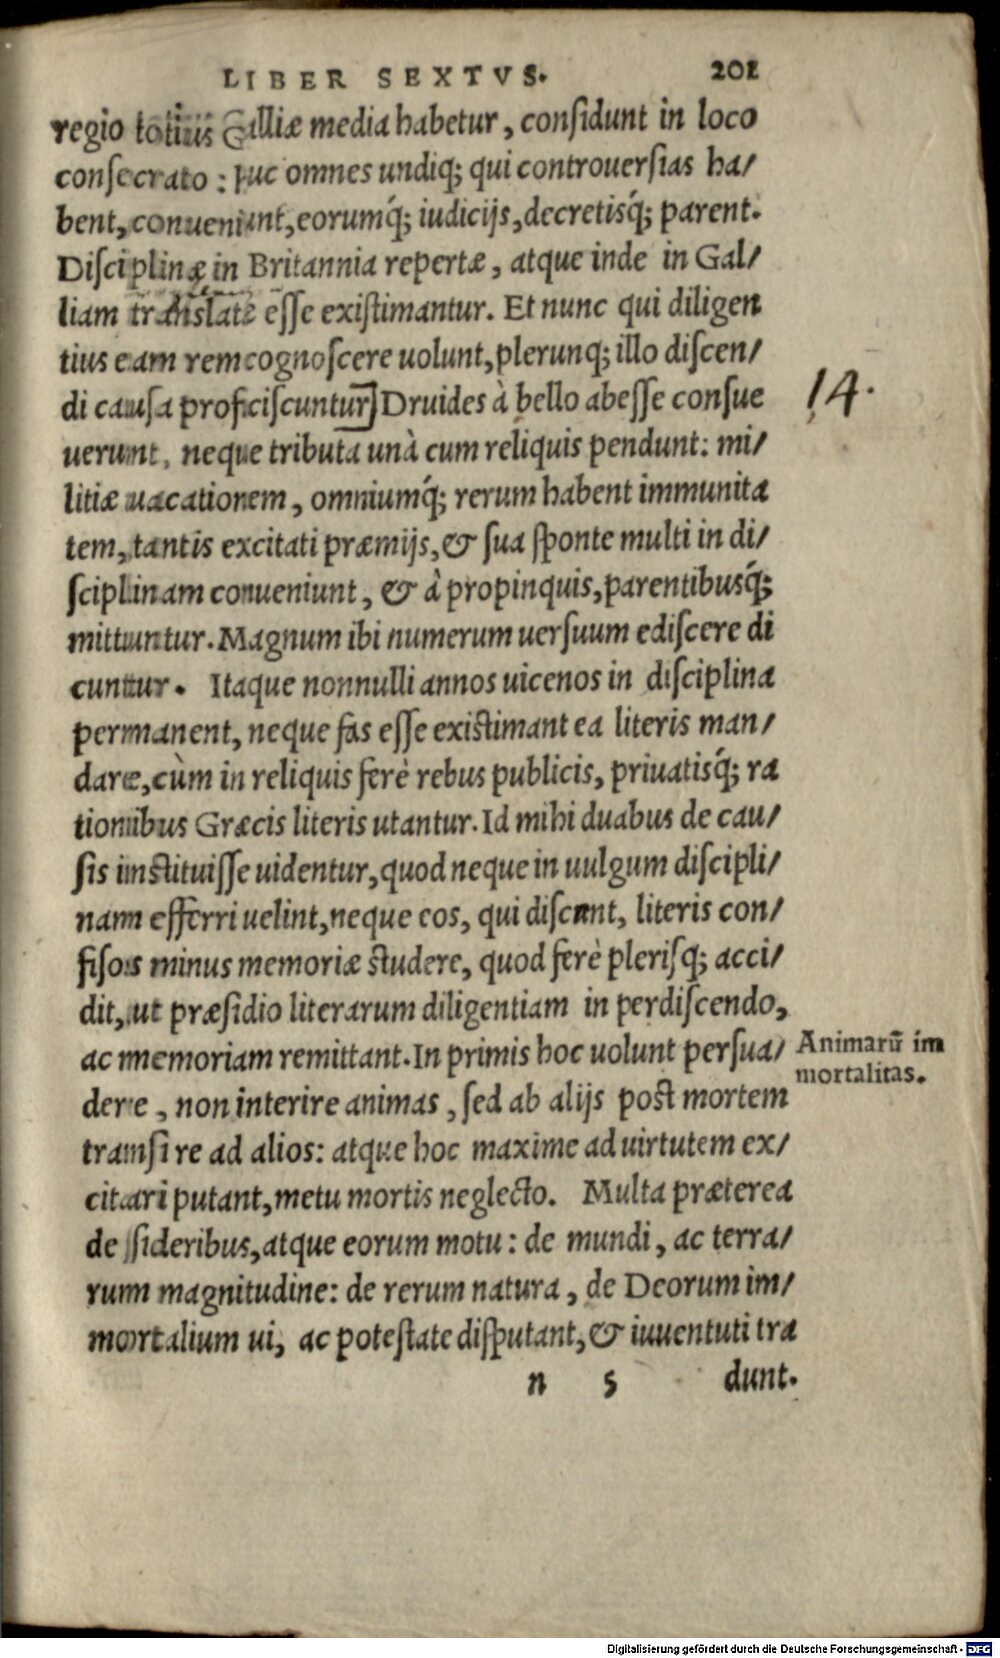 LIBER SEXTVS. 201
regio totius Galliæ media habetur, considunt in loco
consecrato: huc omnes undiq; qui controuersias ha/
bent, conueniunt, eorumq́; iudicijs, decretisq́; parent.
Disciplinæ in Britannia repertæ, atque inde in Gal/
liam translatę esse existimantur. Et nunc qui diligen
tius eam rem cognoscere uolunt, plerunq; illo discen/
di causa proficiscuntur] Druides à bello abesse consue
14.
uerunt, neque tributa unà cum reliquis pendunt: mi/
litiæ uacationem, omniumq́; rerum habent immunita
tem, tantis excitati præmijs, & sua sponte multi in di/
sciplinam conueniunt, & à propinquis, parentibusq́;
mittuntur. Magnum ibi numerum uersuum ediscere di
cuntur. Itaque nonnulli annos uicenos in disciplina
permanent, neque fas esse existimant ea literis man/
dare, cùm in reliquis ferè rebus publicis, priuatisq́; ra
tionibus Græcis literis utantur. Id mihi duabus de cau/
sis instituisse uidentur, quod neque in uulgum discipli/
nam efferri uelint, neque eos, qui discunt, literis con/
fisos minus memoriæ studere, quod ferè plerisq; acci/
dit, ut præsidio literarum diligentiam in perdiscendo,
ac memoriam remittant. In primis hoc uolunt persua/
Animarũ im
mortalitas.
dere, non interire animas, sed ab alijs post mortem
transire ad alios: atque hoc maxime ad uirtutem ex/
citari putant, metu mortis neglecto. Multa præterea
de sideribus, atque eorum motu: de mundi, ac terra/
rum magnitudine: de rerum natura, de Deorum im/
mortalium ui, ac potestate disputant, & iuuentuti tra
n 5 dunt.
Digitalisierung gefördert durch die Deutsche Forschungsgemeinschaft - DFG